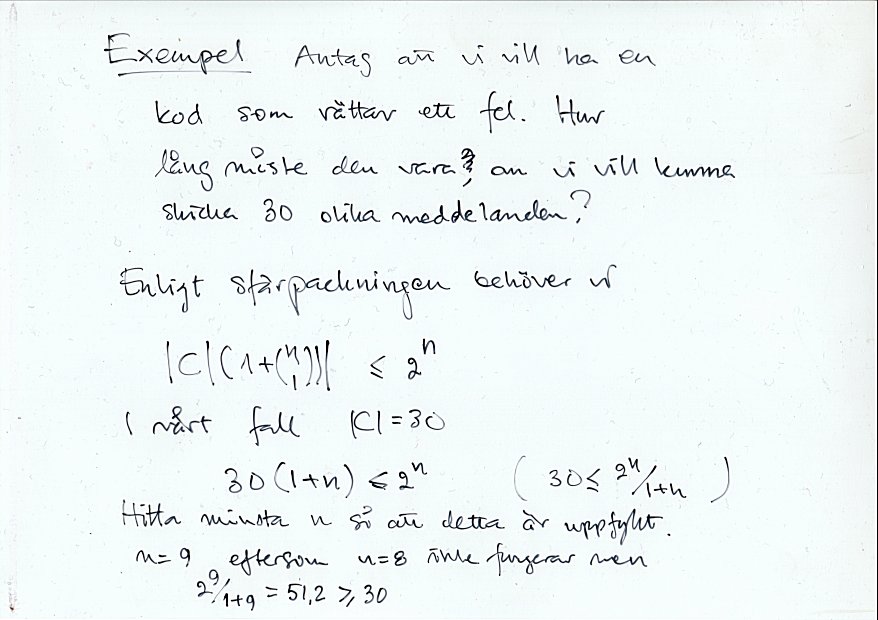 Exempel Antag att vi vill ha en
kod som rättar ett fel. Hur
lång måste den vara, om vi vill kunna
skicka 30 olika meddelanden?
Enligt sfärpackningen behöver vi
|C|(1+(n 1))| ≤ 2^n
I vårt fall |C|=30
30(1+n) ≤ 2^n ( 30 ≤ 2^n/1+n )
Hitta minsta n så att detta är uppfyllt.
n=9 eftersom n=8 inte fungerar men
2^9/1+9 = 51,2 ≥ 30